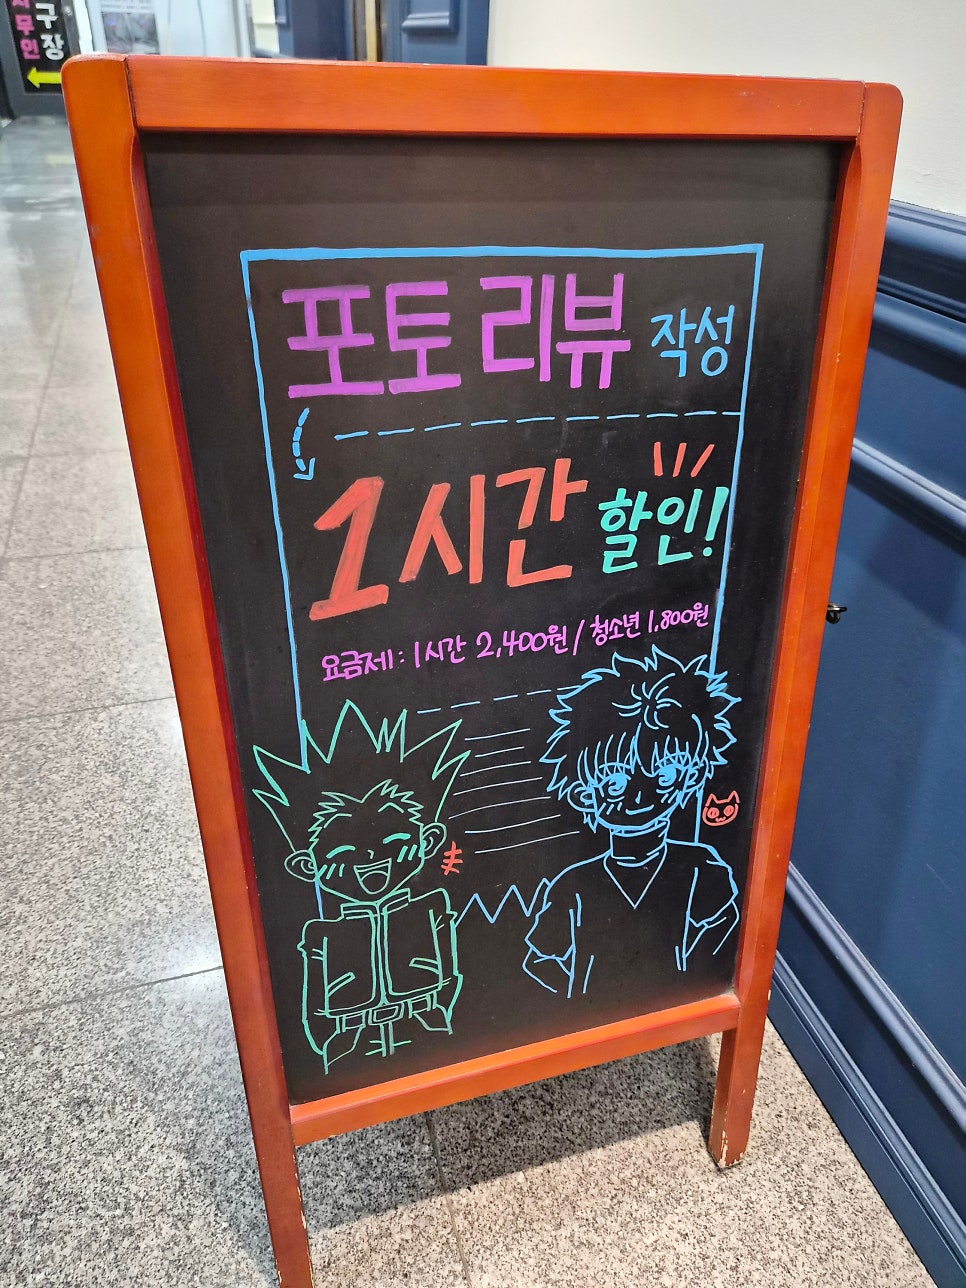 구장
무인
포토 리뷰 작성
1시간 할인!
요금제 : 1시간 2,400원 / 청소년 1,800원